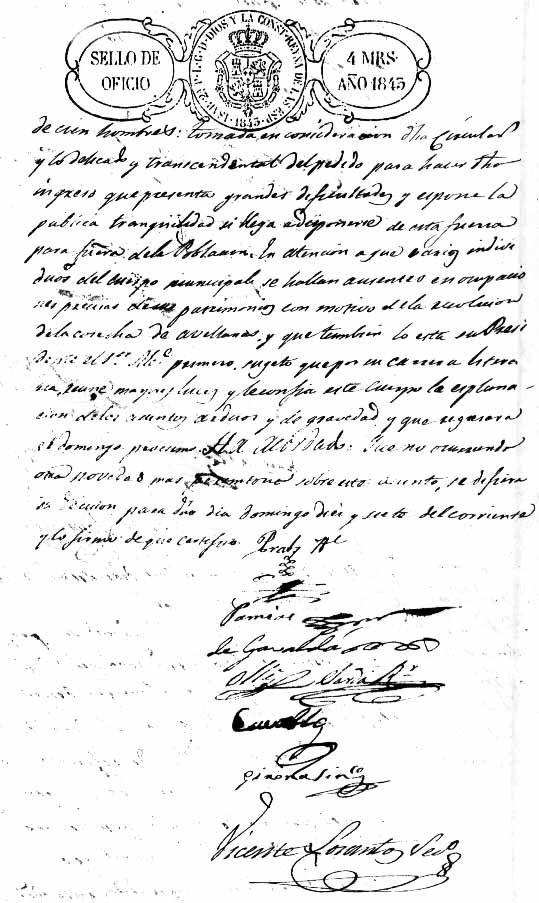 SELLO DE
OFICIO
ISAB. 2ª P. L. G. D. DIOS Y LA CONST. REYNA DE LAS ESP.
1843
4 MRS.
AÑO 1843
de cien hombres: tomada en consideracion dha Circular
y lo delicado y transcendental del pedido para hacer dho
ingreso que presenta grandes dificultades y espone la
publica tranquilidad si llega a disponerse de esta fuerza
para fuera de la Poblacion. En atencion a que varios indivi
duos del cuerpo municipal se hallan ausentes en ocupacio
nes precisas de su patrimonio con motivo de la recolecion
de la cosecha de avellanas, y que tambien lo esta su Presi
dente el Sor. Alc.e primero, sugeto que por su carrera litera
ria, reune mayores luces y le confia este cuerpo la esplana
cion de los asuntos arduos y de gravedad y que regresara
el domingo procsimo. Ha acordado: Que no ocurriendo
otra novedad mas perentoria sobre este asunto, se difiera
su decision para dho dia domingo diez y siete del corriente
y lo firman de que certifico. Prats Al.e
Pamies
de Gavaldá
Sardá Rr
Girona Sin.co
Vicente Sorantos Sec.o